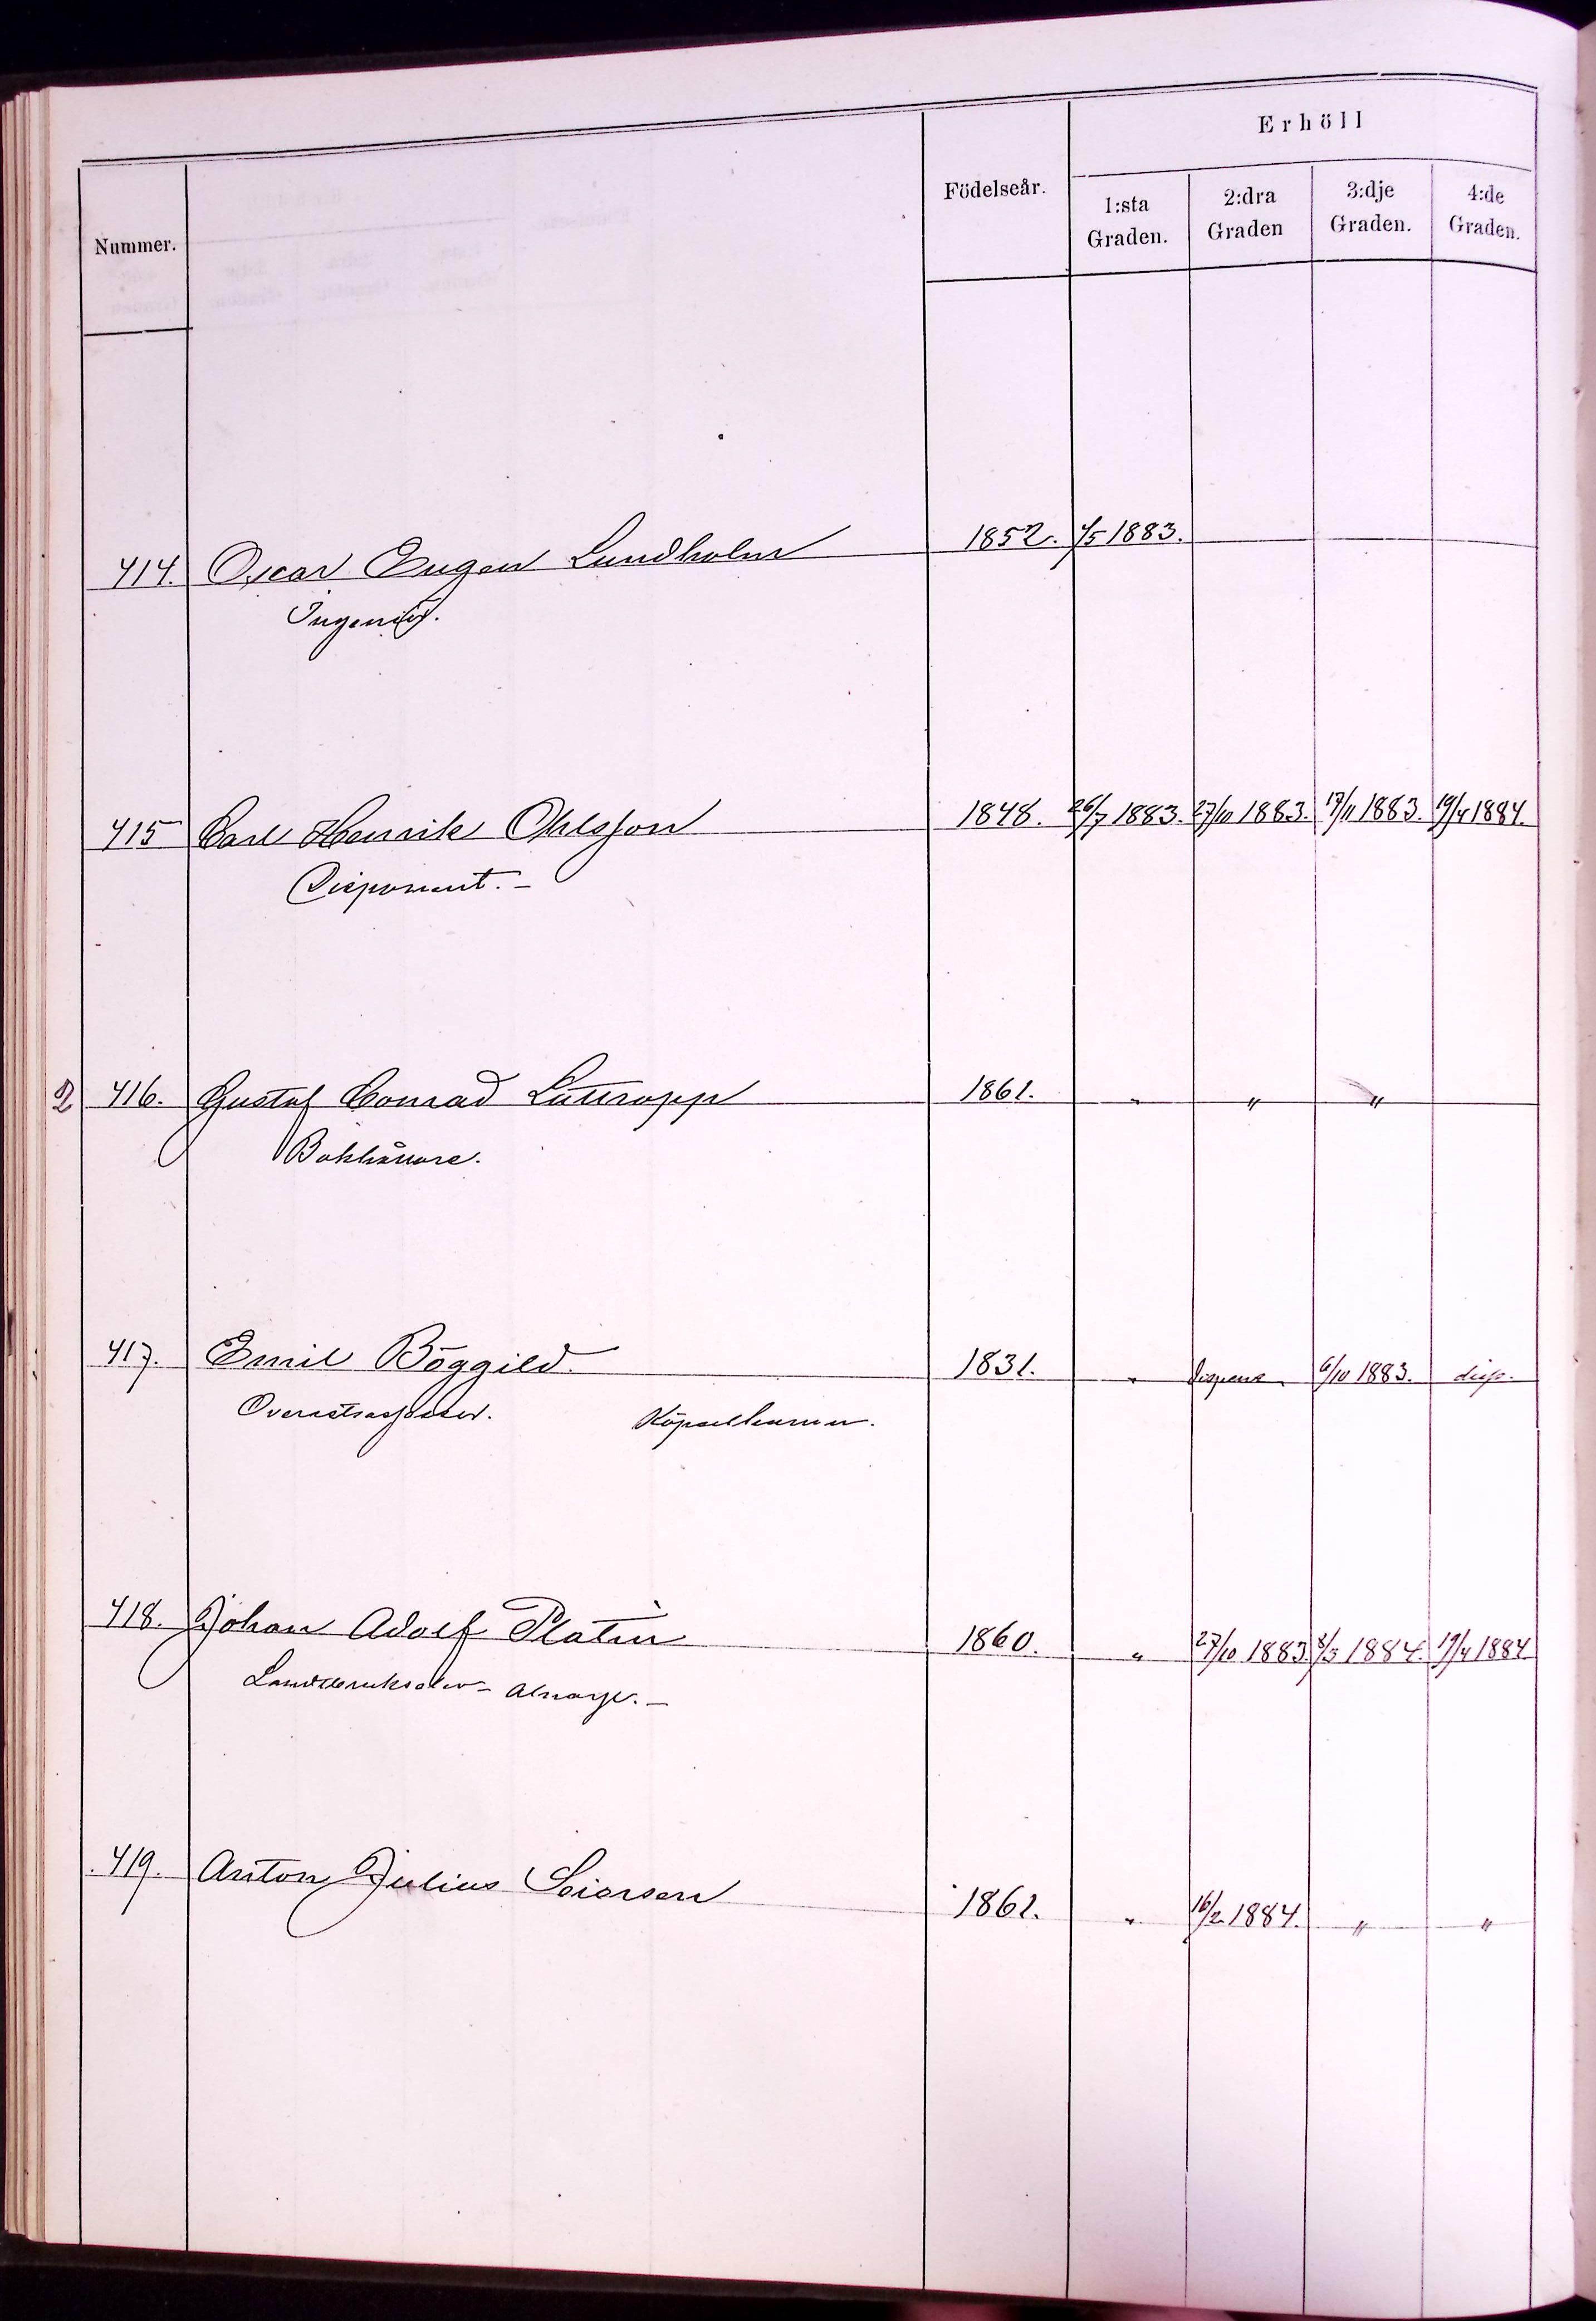 Erhöll
Nummer. Födelseår. 1:sta Graden. 2:dra Graden 3:dje Graden. 4:de Graden.
414. Oscar Eugen Lundholm 1852. 4/5 1883.
Ingeniör.
415 Carl Henrik Ohlsson 1848. 26/7 1883. 27/10 1883. 17/11 1883. 19/4 1884.
Disponent. –
2 416. Gustaf Conrad Lüttropp 1861. " " "
Bokhållare.
417. Emil Böggild. 1831. " Dispens. 6/10 1883. disp.
Köpenhamn.
418. Johan Adolf Platin 1860. " 27/10 1883. 8/3 1884. 19/4 1884
Landtbrukselev – Alnarp. –
419. Anton Julius Seiersen 1861. " 16/2 1884. " "